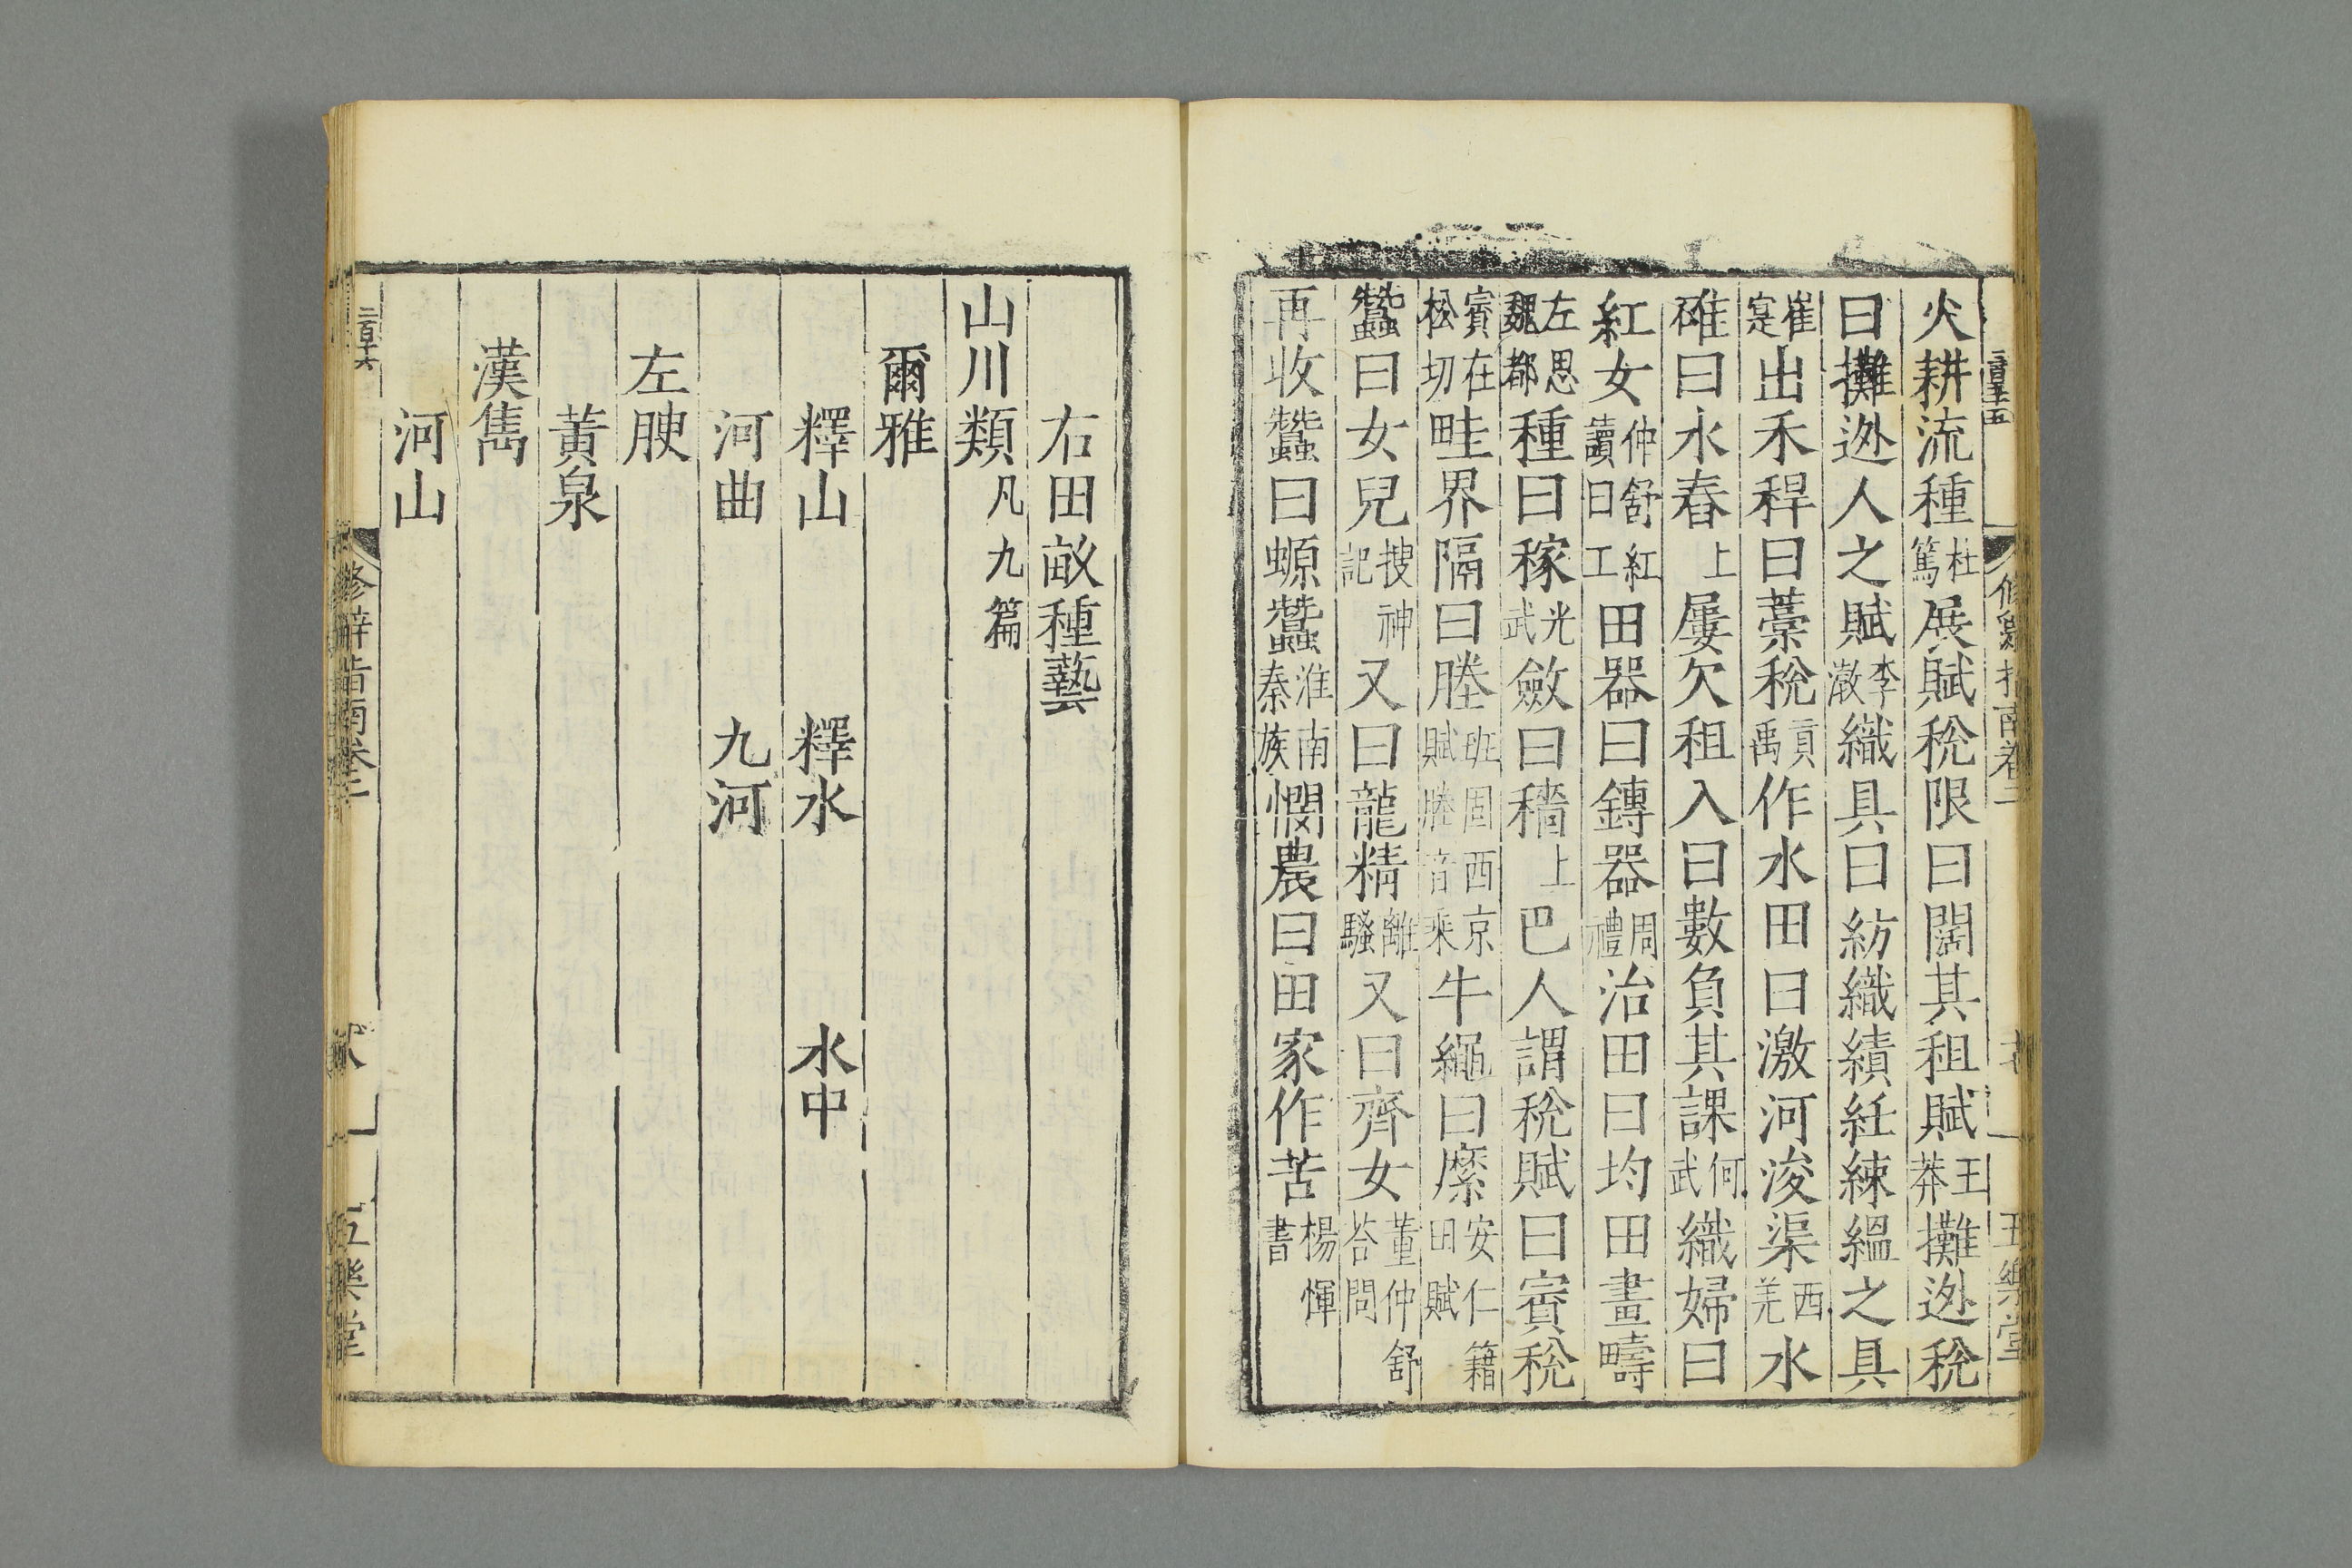 火耕流種杜篤展賦稅限曰闊其租賦王莽攤逊稅
曰攤逊人之賦李渤織具曰紡織績紝練縕之具
崔寔出禾稈曰藁稅禹貢作水田曰激河浚渠西羌水
碓曰水舂上屢欠租入曰數負其課何武織婦曰
紅女仲舒讀曰紅工田器曰鎛器周禮治田曰均田畫疇
左思魏都種曰稼光武斂曰穡上巴人謂稅賦曰賓稅
賓在松切畦界隔曰塍班固西京賦塍音乘牛繩曰縻安仁籍田賦
蠶曰女兒搜神記又曰龍精離騷又曰齊女董仲舒荅問
再收蠶曰螈蠶淮南秦族憫農曰田家作苦楊惲書
右田畝種藝
山川類凡九篇
爾雅
釋山 釋水 水中
河曲 九河
左腴
黃泉
漢雋
河山
二百十六
修辭指南卷二
五樂堂